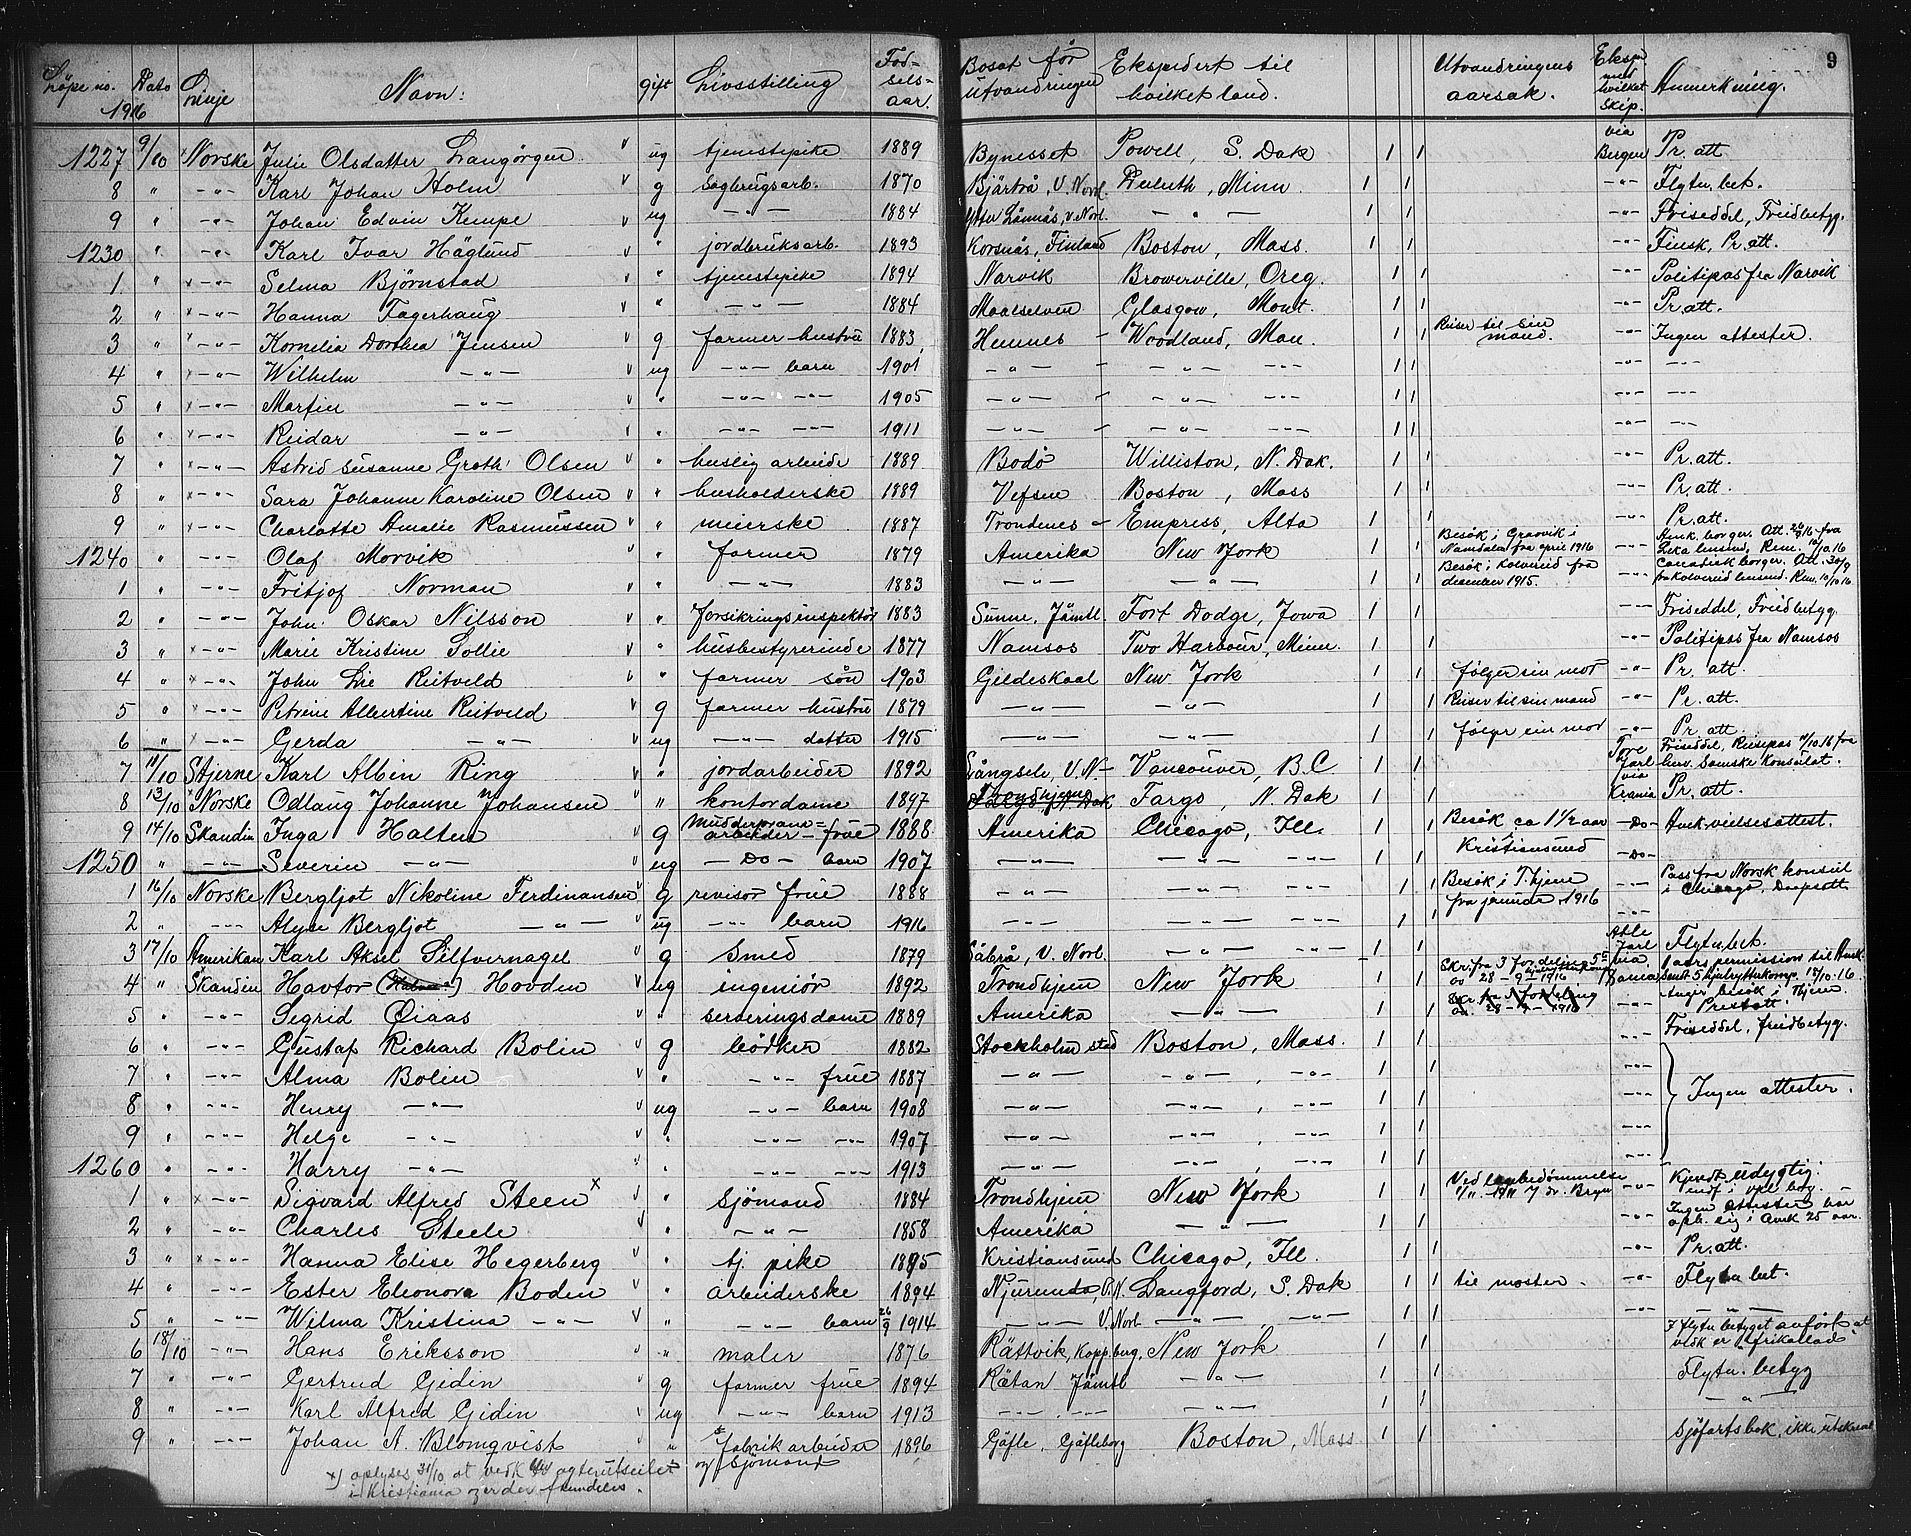 Løpe no. Dato 1916 Linje Navn: gift Livsstilling Fødselsaar. Bosat før utvandringen Ekspedert til hvilket land. Utvandringens aarsak. Eksp. med hvilket skip. Anmerkning. 9
1227 9/10 × Norske Julie Olsdatter Langørgen v ug tjenestepike 1889 Bynesset Powell, S. Dak 1 1 via Bergen Pr. att
8 " -"- Karl Johan Holm v g sagbrugsarb. 1870 Bjärtrå, V. Norrl. Duluth, Minn. 1 1 -"- Flyttn. bet.
9 " -"- Johan Edvin Kempe v ug -"- 1884 Ytter Lännäs, V. Norl. -"- 1 1 -"- Friseddel, Freidbetyg.
1230 " -"- Karl Ivar Häglund v " jordbruksarb. 1893 Korsnäs, Finland Boston, Mass. 1 1 -"- Finsk, Pr. att.
1 " ×-"- Selma Bjørnstad v " tjenestepike 1894 Narvik Browerville, Oreg. 1 1 -"- Politipas fra Narvik
2 " ×-"- Hanna Fagerhaug v " -"- 1884 Maalselven Glasgow, Mont. 1 1 -"- Pr. att.
3 " ×-"- Kornelia Dorthea Jensen v g farmer hustru 1883 Hemnes - Woodland, Man. 1 1 Reiser til sin mand. -"- Ingen attester.
4 " ×-"- Wilhelm -"- v ug -"- barn 1901 -"- - -"- -"- 1 1 -"- -"-
5 " ×-"- Martin -"- v " -"- -"- 1905 -"- - -"- -"- 1 1 -"- -"-
6 " ×-"- Reidar -"- v " -"- -"- 1911 -"- - -"- -"- 1 1 -"- -"-
7 " ×-"- Astrid Susanne Groth Olsen v " huslig arbeide 1889 Bodø Williston, N. Dak. 1 1 -"- Pr. att.
8 " ×-"- Sara Johanne Karoline Olsen v " husholderske 1889 Vefsen Boston, Mass 1 1 -"- Pr. att.
9 " ×-"- Charlotte Amalie Rasmussen v " meierske 1887 Trondenes - Empress, Alta 1 1 -"- Pr. att.
1240 " -"- Olaf Morvik v " farmer 1879 Amerika New York 1 1 Besøk i Gravvik i Namdalen fra april 1916 -"- Amk. borger. Att. 26/9 16 fra Leka lensmd, Rem. 10/10.16
1 " -"- Fritjof Norman v " -"- 1883 -"- -"- 1 1 Besøk i Kolvereid fra desember 1915. -"- Canadisk borger. Att. 30/9 fra Kolvereid lensmd. Rem. 10/10 16
2 " -"- John Oskar Nilsson v " forsikringsinspektør 1883 Sunne, Jämtl Fort Dodge, Jowa 1 1 -"- Friseddel, Freidbetyg.
3 " ×-"- Marie Kristine Sollie v " husbestyrerinde 1877 Namsos Two Harbour, Minn. 1 1 -"- Politipas fra Namsos
4 " ×-"- John Lie Reitveld v " farmer søn 1903 Gildeskaal New York 1 1 følger sin mor -"- Pr. att.
5 " ×-"- Petrine Albertine Reitveld v g farmer hustru 1879 -"- -"- 1 1 Reiser til sin mand -"- Pr. att.
6 " ×-"- Gerda -"- v ug -"- datter 1915 -"- -"- 1 1 følger sin mor -"- Pr. att.
7 11/10 Stjerne Karl Albin Ring v " jordarbeider 1892 Långsele, V. N- Vancouver, B.C. 1 1 Tore Jarl via Friseddel, Reisepas 11/10.16 fra herv. Svenske Konsulat.
8 13/10 × Norske Odlaug Johanne Johansen v " kontordame 1897 Trondhjem Fargo, N. Dak 1 1 Krania Pr. att.
9 14/10 Skandin Inga Halten v g Mudderpram= arbeider - frue 1888 Amerika Chicago, Ill. 1 1 Besøk ca 1 1/2 aar i Kristiansund -Do- Amk. vielsesattest.
1250 " -"- Severin -"- ug -Do- barn 1907 -"- -"- -"- 1 1 -Do-
1 16/10 Norske Bergljot Nikoline Ferdinansen v g revisor frue 1888 -"- -"- -"- 1 1 Besøk i T.hjem fra januar 1916 -"- Pass fra Norsk konsul i Chicago, Daapsatt
2 " -"- Alyce Bergljot -"- v ug -"- barn 1916 -"- -"- -"- 1 1 -"-
3 17/10 Amerikan Karl Aksel Silfvernagel v g Smed 1879 Säbrå, V. Norl. -"- -"- 1 1 Atle Jarl via Flyttn. bet.
4 " Skandin Havtor Hovden v ug ingeniør 1892 Trondhjem New York 1 1 Skr. fra 3 fordeling 5te av 28 - 9 1916 1 aars permission til Amk. samt 5 hjulrytterkomp. 18/10.16
5 " -"- Sigrid Øiaas v " serveringsdame 1889 Amerika -"- 1 1 Anger besøk i T.hjem. Prestatt.
6 " -"- Gustaf Richard Bolin v g bødker 1882 Stockholm stad Boston, Mass. 1 1 Friseddel, freidbetyg.
7 " -"- Alma Bolin v " -"- frue 1887 -"- -"-, -"- 1 1 -"-
8 " -"- Henry -"- v ug -"- barn 1908 -"- -"-, -"- 1 1 -"- Ingen attester.
9 " -"- Helge -"- v " -"- -"- 1907 -"- -"-, -"- 1 1 -"-
1260 " -"- Harry -"- v " -"- -"- 1913 -"- -"-, -"- 1 1 -"-
1 " ×-"- Sigvard Alfred Steen × v " Sjømand 1884 Trondhjem New York 1 1 Ved lægebedømmelse -"- Kjendt udygtig.
2 " -"- Charles Steele v " -"- 1858 Amerika -"- 1 1 -"- Ingen attester har oph. sig i Amk 25 aar.
3 " ×-"- Hanna Elise Hegerberg v " tj. pike 1895 Kristiansund Chicago, Ill. 1 1 -"- Pr. att.
4 " -"- Ester Eleonora Boden v " arbeiderske 1894 Njurunda, V. N. Langford, S. Dak 1 1 til moster - -"- Flyttn. bet.
5 " -"- Wilma Kristina -"- v " -"- barn 26/9 1914 -"- V. Norl. -"-, -"- 1 1 -"- -"-
6 18/10 -"- Hans Eriksson v " maler 1876 Rättvik, Kopp.berg. New York 1 1 I flyttn betyget anført at vedk er Afrikallad
7 " -"- Gertrud Gidin v g farmer frue 1894 Rätan Jämtl -"- 1 1 Flyttn. betyg
8 " -"- Karl Alfred Gidin v ug -"- barn 1913 -"- -"- -"- 1 1 -"-
9 " -"- Johan A. Blomqvist v " Fabrikarbeider og Sjømand 1896 Gäfle, Gäfleborg Boston, Mass 1 1 Sjøfartsbok, ikke utskrevet
×) oplyses 31/10 at vedk blev agterutseilet
i Kristiania og er der fremdeles.